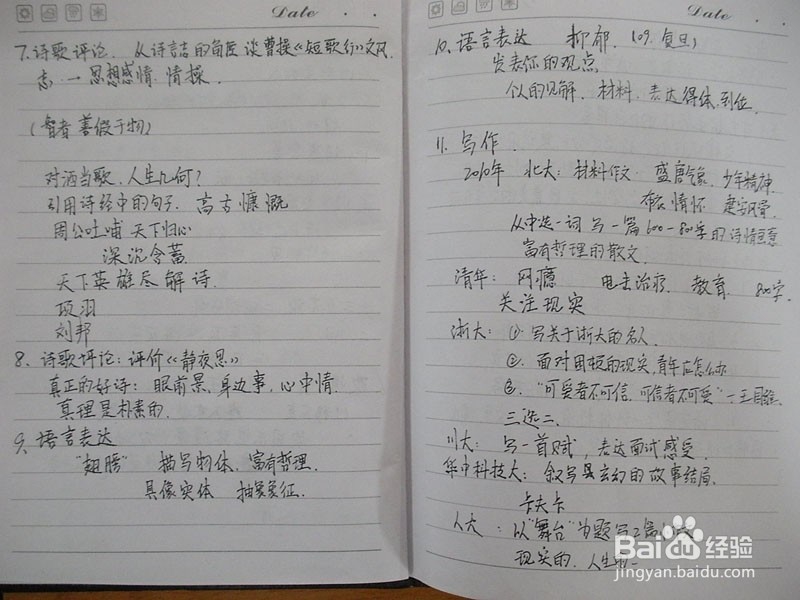 Date . .
7. 诗歌评论. 从诗言志的角度谈曹操《短歌行》文风.
志. — 思想感情. 情操.
(智者善假于物)
对酒当歌, 人生几何?
引用诗经中的句子. 高古慷慨
周公吐哺 天下归心
深沉含蓄
天下英雄尽解诗.
项羽
刘邦
8. 诗歌评论: 评价《静夜思》
真正的好诗: 眼前景, 身边事, 心中情.
真理是朴素的.
9. 语言表达
"翅膀" 描写物体. 富有哲理.
具像实体 抽象象征.
Date . .
10. 语言表达 抑郁. (09. 复旦)
发表你的观点
个人的见解. 材料. 表达得体, 到位.
11. 写作.
2010年 北大: 材料作文. 盛唐气象. 少年精神.
布衣情怀 建安风骨.
从中选一词 写一篇600-800字的诗情画意
富有哲理的散文.
清华: 网瘾 电击治疗. 教育. 800字.
关注现实
浙大: ①. 写关于浙大的名人.
②. 面对困境的现实, 青年应怎么办
③. "可爱者不可信. 可信者不可爱" —王国维.
三选二.
川大: 写一首赋, 表达面试感受.
华中科技大: 叙写具玄幻的故事结局.
卡夫卡
人大: 以"舞台"为题写
现实的. 人生
Baidu 经验
jingyan.baidu.com